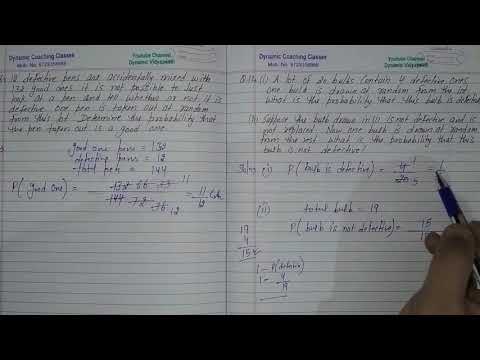 Dynamic Coaching Classes
Youtube Channel
Dynamic Vidyapeeth
12 defective pens are accidentally mixed with
132 good ones it is not possible to Just
look at a pen and tell whether or not it is
defective one pen is taken out at random
from this lot. Determine the probability that
the pen taken out is a good one.
good one pens = 132
defective pens = 12
total pens = 144
P( good one) = 132 66 33 11 = 11
144 72 36 12 12
Dynamic Coaching Classes
Youtube Channel
Dynamic Vidyapeeth
(i) A lot of 20 bulbs contain 4 defective ones
one bulb is drawn at random from the lot
what is the probability that this bulb is defective
(ii) Suppose the bulb drawn in (i) is not defective and is
not replaced Now one bulb is drawn at random
from the rest what is the probability that this
bulb is not defective?
(i) P( bulb is defective) = 4 1 = 1
20 5
(ii) total bulb = 19
P( bulb is not defective) = 15
19
4
15
1 - P(defective)
1 - 4
19